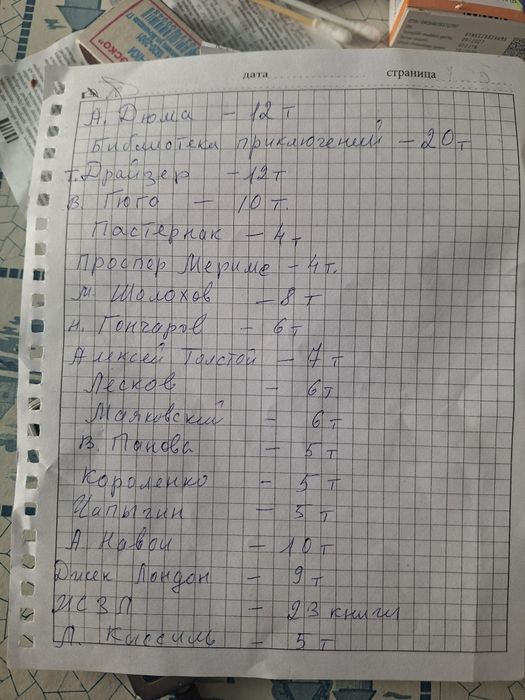 дата страница
А. Дюма - 12 т
Библиотека приключений - 20 т
Т. Драйзер - 12 т
В. Гюго - 10 т.
Пастернак - 4 т
Проспер Мериме - 4 т.
М. Шолохов - 8 т
Н. Гончаров - 6 т
Алексей Толстой - 7 т
Лесков - 6 т
Маяковский - 6 т
В. Панова - 5 т
Короленко - 5 т
Чапыгин - 5 т
А Навои - 10 т
Джек Лондон - 9 т
ЖСЗЛ - 23 книги
Л. Кассиль - 5 т